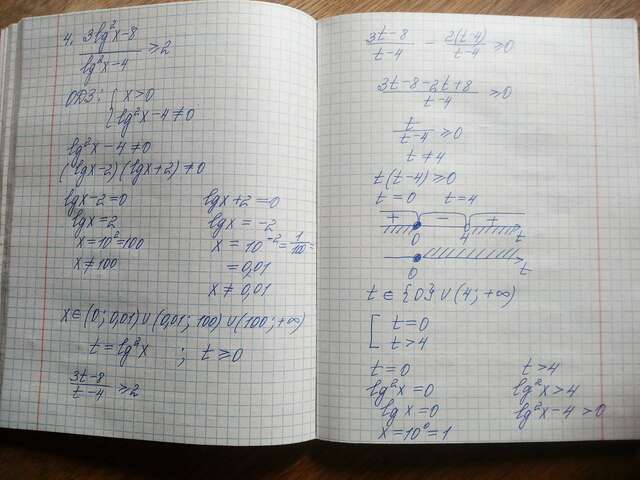 4. (3lg²x-8)/(lg²x-4) ≥2
ОДЗ: { x>0
{ lg²x-4≠0
lg²x-4≠0
(lgx-2)(lgx+2)≠0
lgx-2=0 lgx+2=0
lgx=2 lgx=-2
x=10²=100 x=10⁻²=1/100=
x≠100 =0,01
x≠0,01
x∈(0; 0,01)∪(0,01; 100)∪(100; +∞)
t=lg²x ; t≥0
(3t-8)/(t-4) ≥2
(3t-8)/(t-4) - 2(t-4)/(t-4) ≥0
(3t-8-2t+8)/(t-4) ≥0
t/(t-4) ≥0
t≠4
t(t-4)≥0
t=0 t=4
+ - +
0 4 t
0 t
t∈{0}∪(4; +∞)
[ t=0
[ t>4
t=0 t>4
lg²x=0 lg²x>4
lgx=0 lg²x-4>0
x=10⁰=1